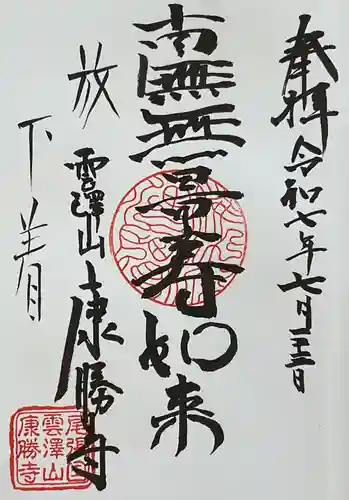 奉拝 令和七年七月二十三日
南無無量寿如来
放下着
雲澤山 康勝寺
尾張国
雲澤山
康勝寺